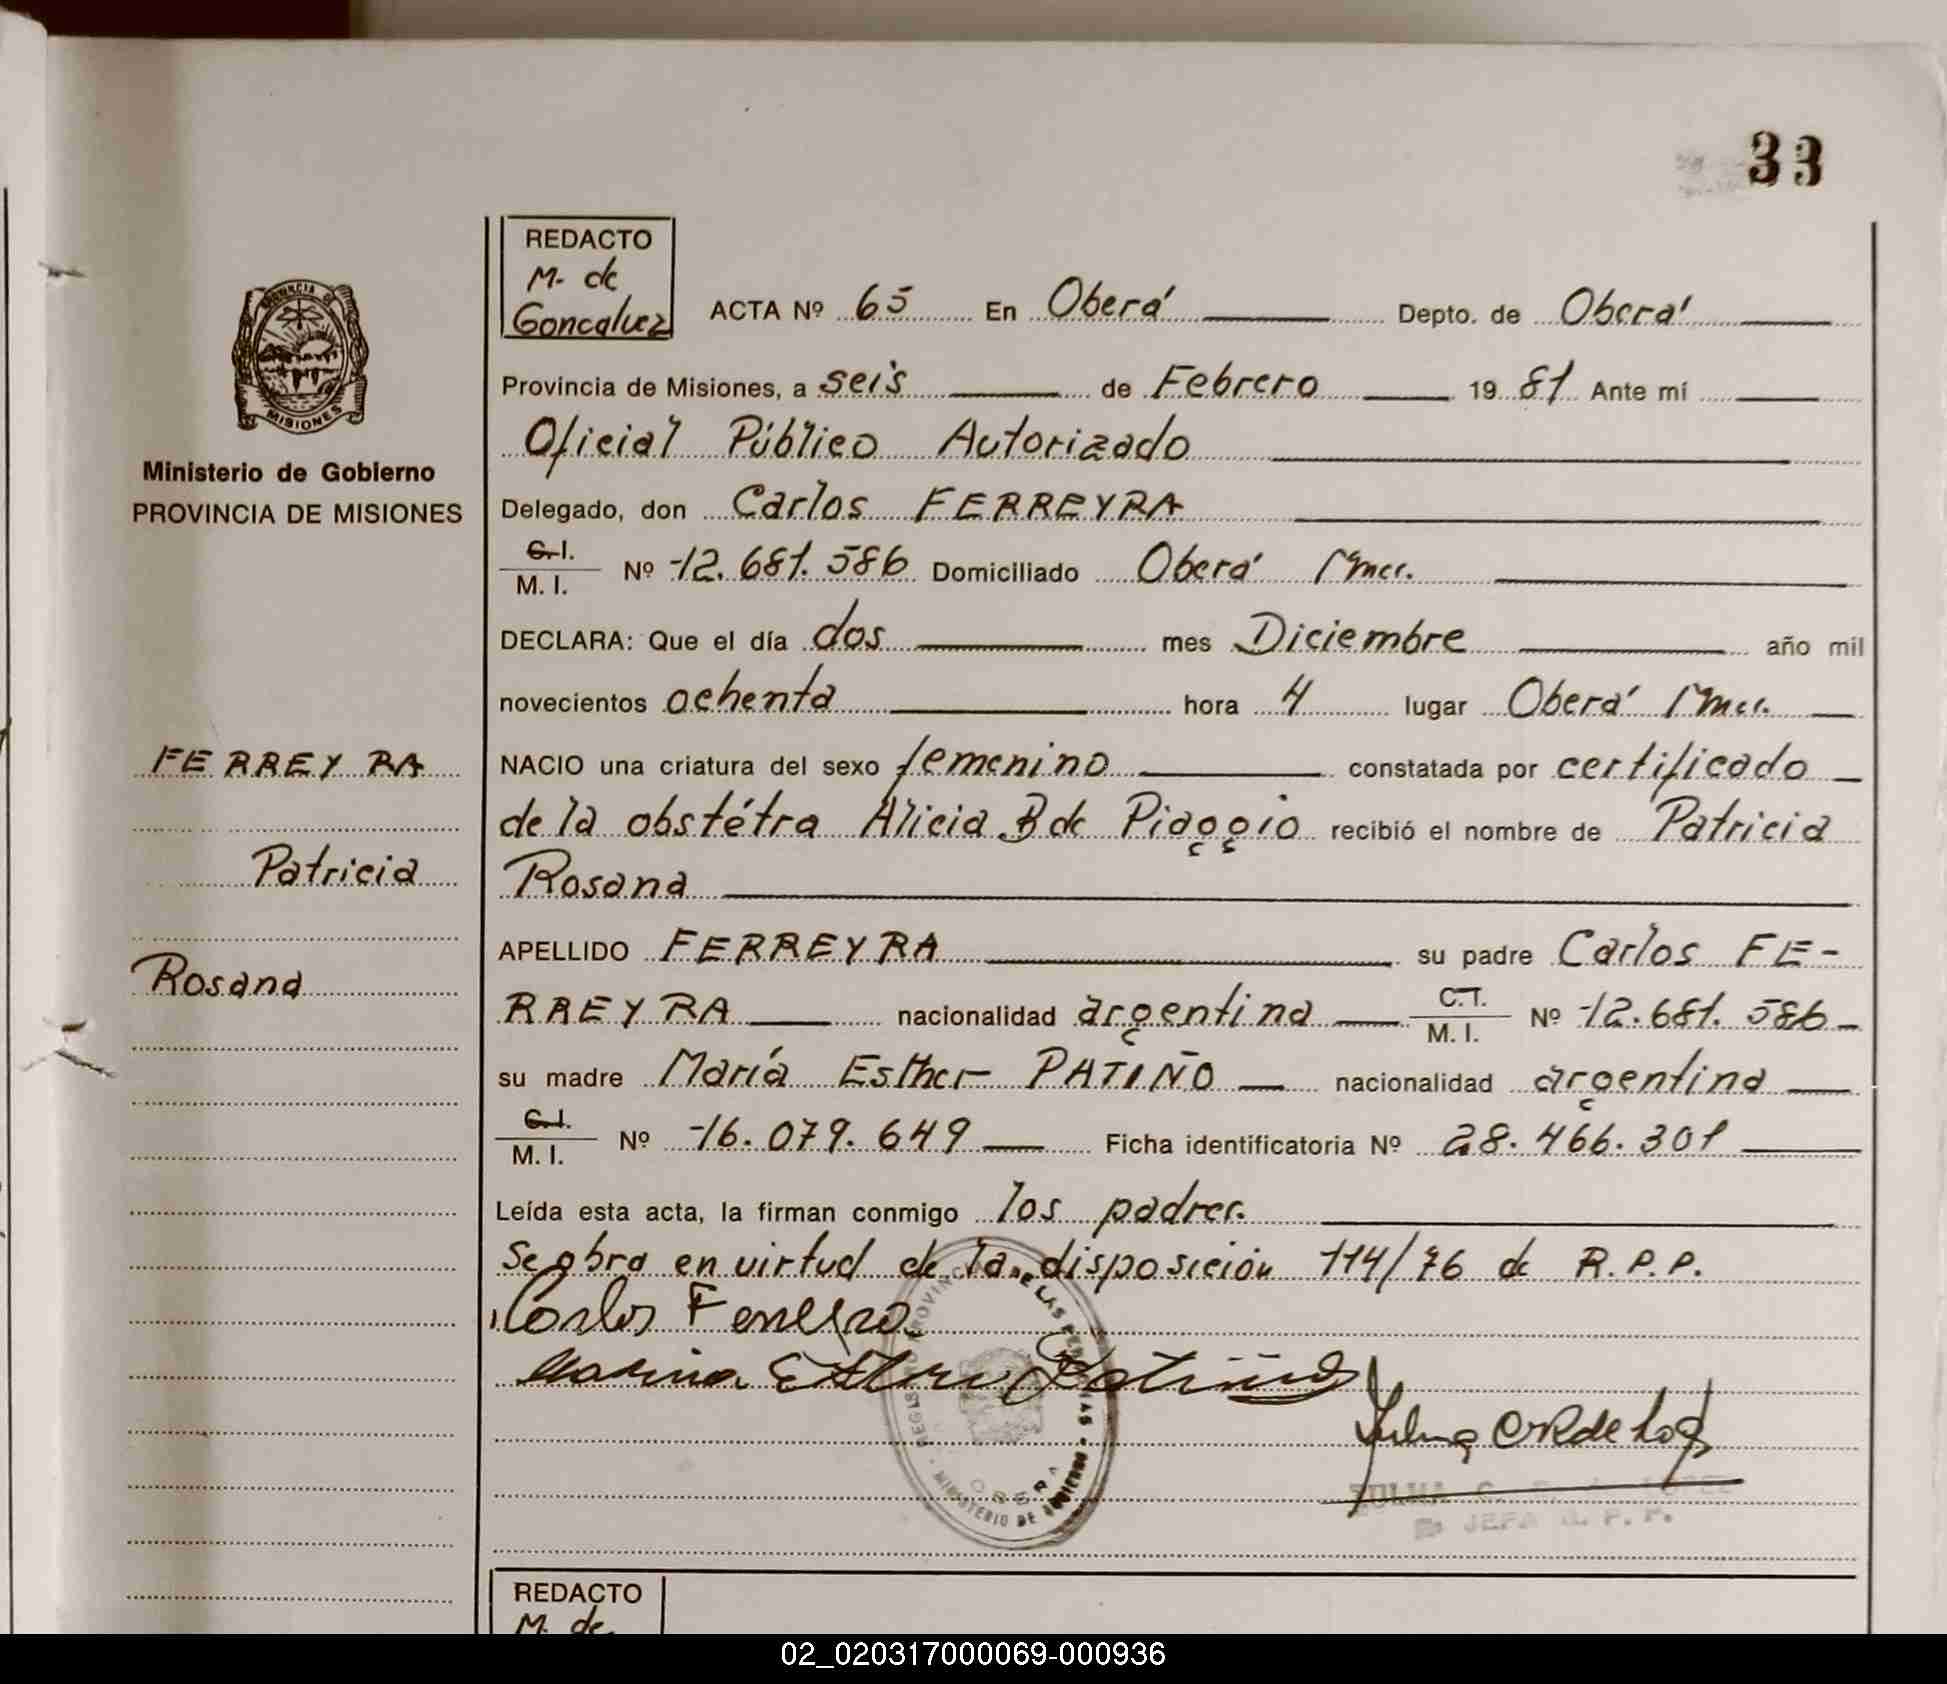 33
REDACTO
M. de
Goncalvez
ACTA Nº 65 En Oberá Depto. de Oberá
PROVINCIA DE
MISIONES
Provincia de Misiones, a seis de Febrero 19 81 Ante mí
Oficial Público Autorizado
Ministerio de Gobierno
PROVINCIA DE MISIONES
Delegado, don Carlos FERREYRA
C.I.
M. I. Nº 12.681.586 Domiciliado Oberá Mnes.
DECLARA: Que el día dos mes Diciembre año mil
novecientos ochenta hora 4 lugar Oberá Mnes.
FERREYRA
NACIO una criatura del sexo femenino constatada por certificado
de la obstétra Alicia B de Piaggio recibió el nombre de Patricia
Patricia
Rosana
APELLIDO FERREYRA su padre Carlos FE-
Rosana
RREYRA nacionalidad argentina C.I. M. I. Nº 12.681.586
su madre María Esther PATIÑO nacionalidad argentina
C.I.
M. I. Nº 16.079.649 Ficha identificatoria Nº 28.466.301
Leída esta acta, la firman conmigo los padres.
Se obra en virtud de la disposición 114/76 de R.P.P.
Carlos Ferreyra
Esther Patiño
REGISTRO PROVINCIAL DE LAS PERSONAS - MINISTERIO DE GOBIERNO
OBERA
ZULMA C. R. de LOPEZ
JEFA R. P. P.
REDACTO
M. de
02_020317000069-000936